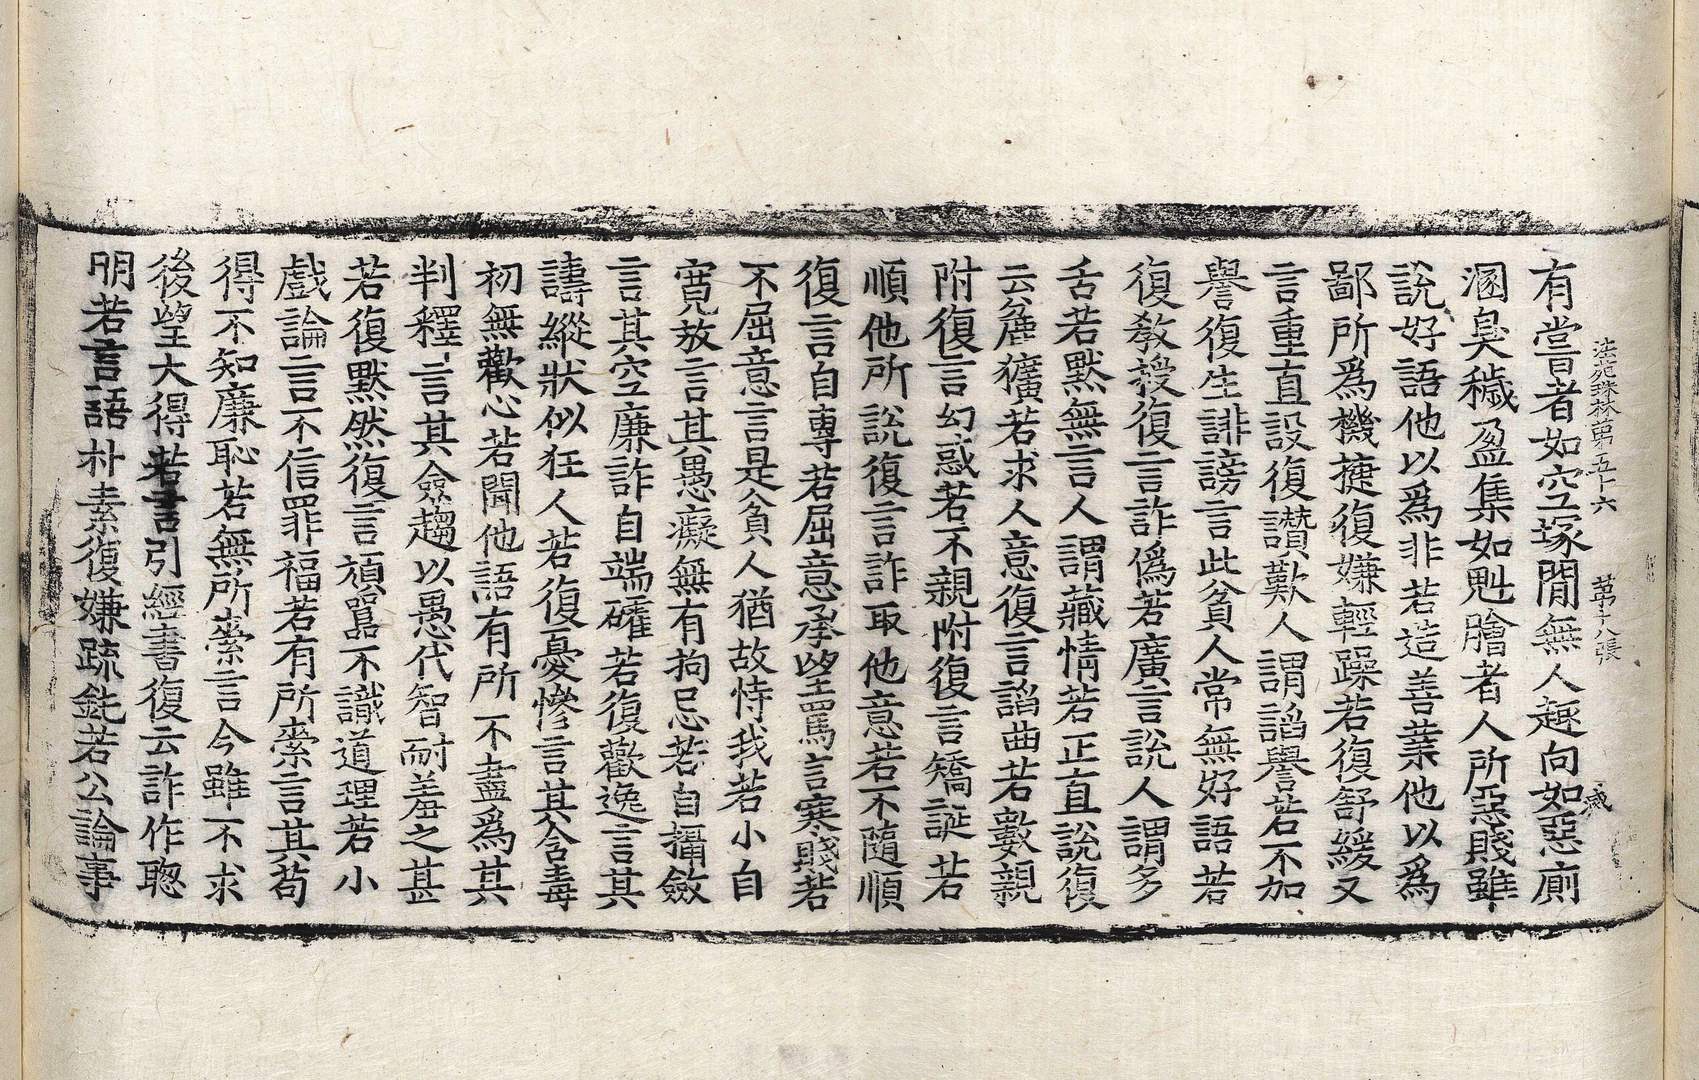 法苑珠林第五十六　第十八張　感
有嘗者如空塚間無人趣向如惡廁
溷臭穢盈集如魁膾者人所惡賤雖
說好語他以爲非若造善業他以爲
鄙所爲機揵復嫌輕躁若復舒緩又
言重直設復讚歎人謂諂譽若不加
譽復生誹謗言此貧人常無好語若
復敎授復言詐僞若廣言說人謂多
舌若默無言人謂藏情若正直說復
云麁獷若求人意復言諂曲若數親
附復言幻惑若不親附復言矯誕若
順他所說復言詐取他意若不隨順
復言自專若屈意承望罵言寒賤若
不屈意言是貧人猶故恃我若小自
寬放言其愚癡無有拘忌若自攝斂
言其空廉詐自端確若復歡逸言其
譸縱狀似狂人若復憂慘言其含毒
初無歡心若聞他語有所不盡爲其
判釋言其僉趨以愚代智耐羞之甚
若復默然復言頑嚚不識道理若小
戲論言不信罪福若有所索言其苟
得不知廉恥若無所索言今雖不求
後望大得若言引經書復云詐作聦
明若言語朴素復嫌䟽鈍若公論事